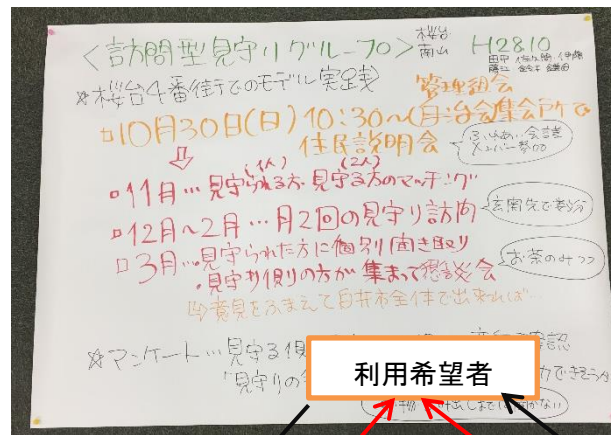 <訪問型見守りグループ> 桜台 南山 H28.10
田中 佐久間 伊藤
藤江
※桜台4番街でのモデル実践
管理組合
10月30日(日)10:30~(自治会集会所で
住民説明会
ふれあい会議 メンバー参加
(1人) (2人)
11月…見守られる方・見守る方のマッチング
12月~2月…月2回の見守り訪問
玄関先で5分
3月…見守られた方に個別聞き取り
・見守り側の方が集まって懇談会
お茶のみつつ
意見をふまえて白井市全体で出来れば…
※アンケート…見守る側
「見守りの
利用希望者